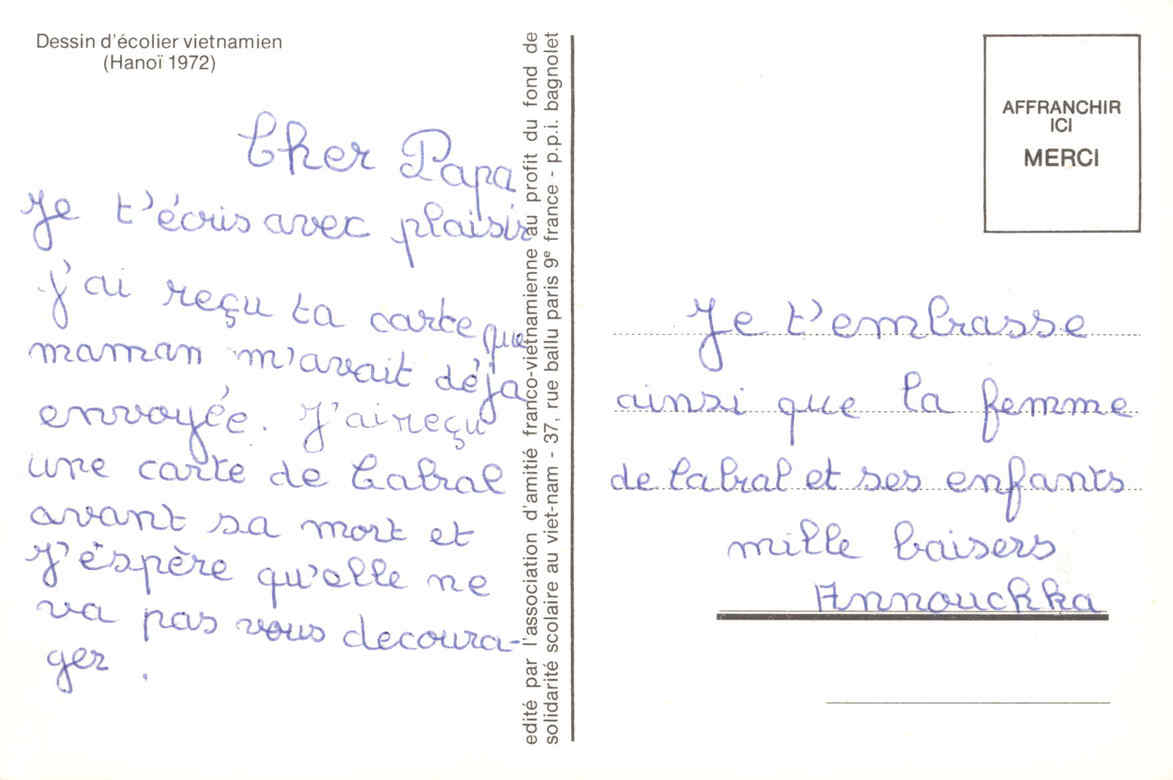 Dessin d'écolier vietnamien
(Hanoï 1972)
Cher Papa
Je t'écris avec plaisir
j'ai reçu ta carte que
maman m'avait déja
envoyée. J'ai reçu
une carte de Cabral
avant sa mort et
J'éspère qu'elle ne
va pas vous decoura-
ger.
edité par l'association d'amitié franco-vietnamienne au profit du fond de
solidarité scolaire au viet-nam - 37, rue ballu paris 9e france - p.p.i. bagnolet
AFFRANCHIR
ICI
MERCI
Je t'embrasse
ainsi que la femme
de Cabral et ses enfants
mille baisers
Annouchka